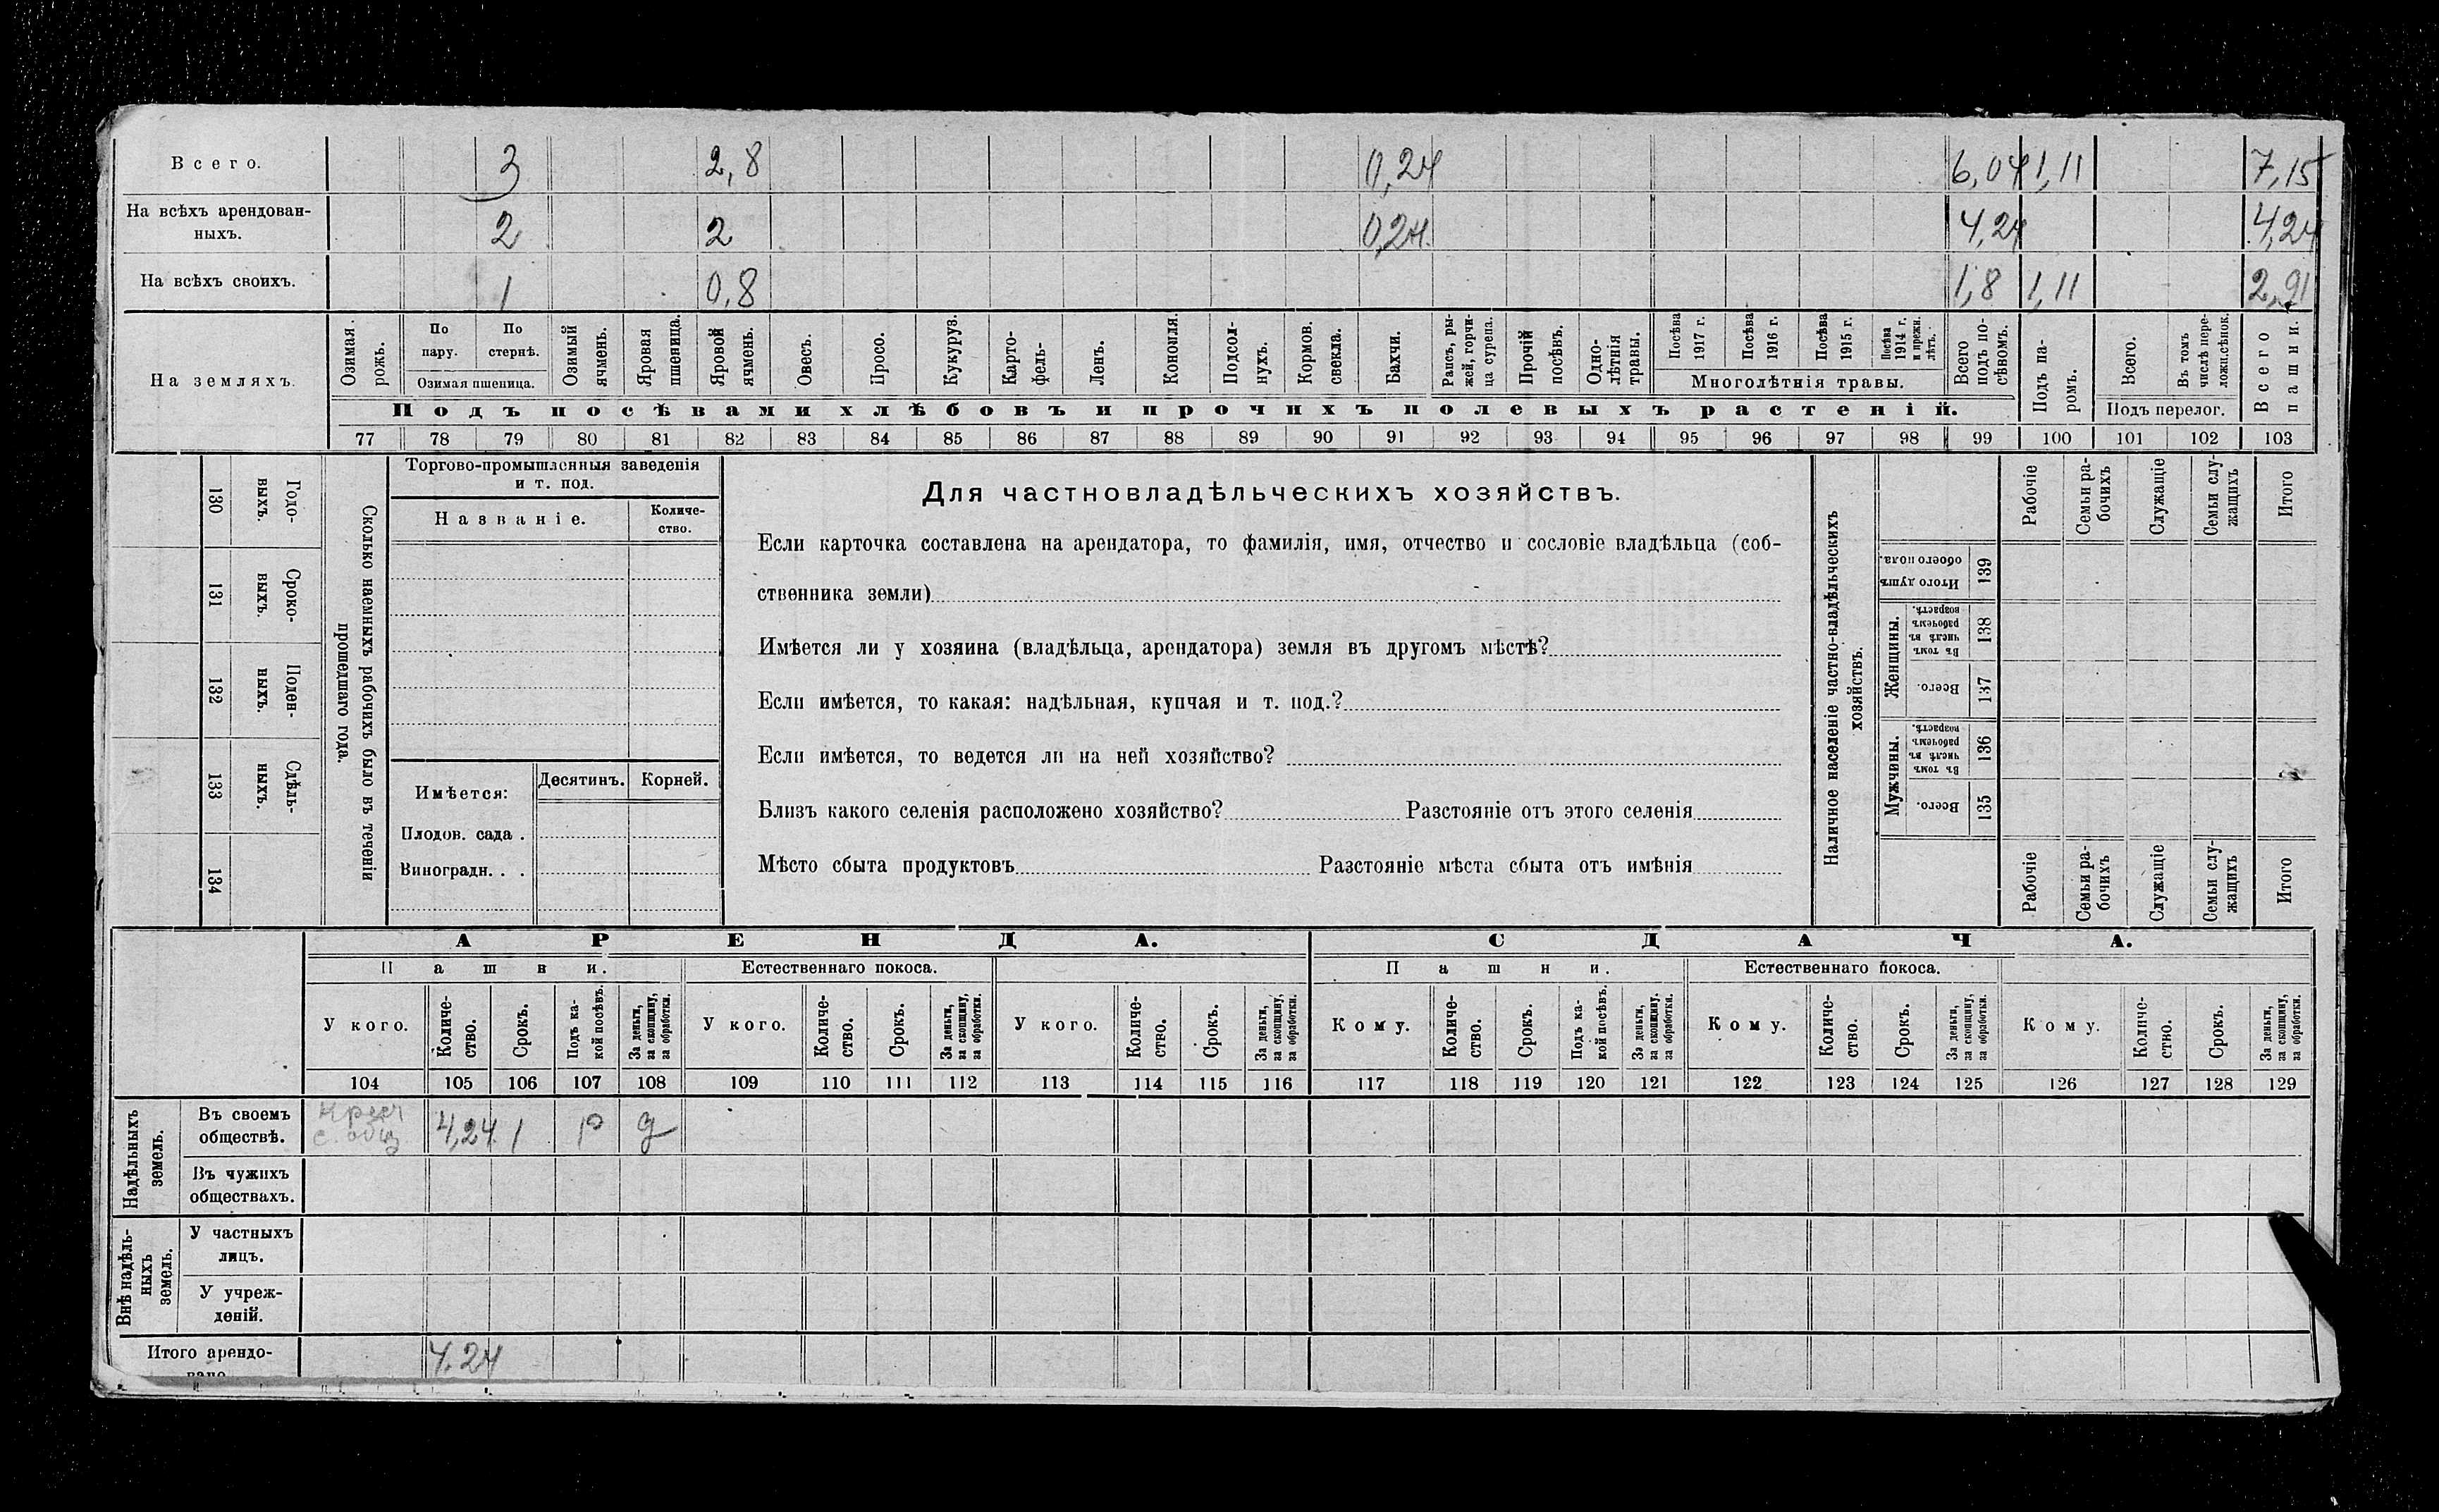 Всего. 3 2,8 0,24 6,04 1,11 7,15
На всѣхъ арендован-
ныхъ. 2 2 0,24 4,24 4,24
На всѣхъ своихъ. 1 0,8 1,8 1,11 2,91
На земляхъ.
Озимая рожь.
По пару.
По стернѣ.
Озимая пшеница.
Озимый ячмень.
Яровая пшеница.
Яровой ячмень.
Овесъ.
Просо.
Кукуруз.
Карто-
фель-
Ленъ.
Конопля.
Подсол-
нухъ.
Кормов.
свекла.
Бахчи.
Рапсъ, ры-
жей, горчи-
ца сурепа.
Прочій
посѣвъ.
Одно-
лѣтнія
травы.
Посѣва
1917 г.
Посѣва
1916 г.
Посѣва
1915 г.
Посѣва
1914 г.
и прежн.
лѣтъ.
Многолѣтнія травы.
Всего
подъ по-
сѣвомъ.
Подъ па-
ромъ.
Всего.
Въ томъ
числѣ пере-
лож.сѣнок.
Подъ перелог.
Всего
пашни.
Подъ посѣвами хлѣбовъ и прочихъ полевыхъ растеній.
77 78 79 80 81 82 83 84 85 86 87 88 89 90 91 92 93 94 95 96 97 98 99 100 101 102 103
Годо-
выхъ.
130
Сроко-
выхъ.
131
Поден-
ныхъ.
132
Сдѣль-
ныхъ.
133
134
Сколько наемныхъ рабочихъ было въ теченіи
прошедшаго года.
Торгово-промышленныя заведенія
и т. под.
Названіе.
Количе-
ство.
Имѣется:
Десятинъ.
Корней.
Плодов. сада .
Виноградн. . .
Для частновладѣльческихъ хозяйствъ.
Если карточка составлена на арендатора, то фамилія, имя, отчество и сословіе владѣльца (соб-
ственника земли)
Имѣется ли у хозяина (владѣльца, арендатора) земля въ другомъ мѣстѣ?
Если имѣется, то какая: надѣльная, купчая и т. под.?
Если имѣется, то ведется ли на ней хозяйство?
Близъ какого селенія расположено хозяйство? Разстояніе отъ этого селенія
Мѣсто сбыта продуктовъ Разстояніе мѣста сбыта отъ имѣнія
Наличное населеніе частно-владѣльческихъ
хозяйствъ.
Рабочіе
Семьи ра-
бочихъ
Служащіе
Семьи слу-
жащихъ
Итого
Итого душъ
обоего пола.
139
Женщины.
Въ томъ
числѣ въ
рабочемъ
возрастѣ.
138
Всего.
137
Мужчины.
Въ томъ
числѣ въ
рабочемъ
возрастѣ.
136
Всего.
135
Рабочіе
Семьи ра-
бочихъ
Служащіе
Семьи слу-
жащихъ
Итого
АРЕНДА.
СДАЧА.
Пашни.
Естественнаго покоса.
Пашни.
Естественнаго покоса.
У кого.
Количе-
ство.
Срокъ.
Подъ ка-
кой посѣвъ.
За деньги,
за скопщину,
за обработки.
У кого.
Количе-
ство.
Срокъ.
За деньги,
за скопщину,
за обработки.
У кого.
Количе-
ство.
Срокъ.
За деньги,
за скопщину,
за обработки.
Кому.
Количе-
ство.
Срокъ.
Подъ ка-
кой посѣвъ.
За деньги,
за скопщину,
за обработки.
Кому.
Количе-
ство.
Срокъ.
За деньги,
за скопщину,
за обработки.
Кому.
Количе-
ство.
Срокъ.
За деньги,
за скопщину,
за обработки.
104 105 106 107 108 109 110 111 112 113 114 115 116 117 118 119 120 121 122 123 124 125 126 127 128 129
Надѣльныхъ
земель.
Въ своемъ
обществѣ.
Крест
с. общ. 4,24 1 р д
Въ чужихъ
обществахъ.
Внѣ надѣль-
ныхъ
земель.
У частныхъ
лицъ.
У учреж-
деній.
Итого арендо-
вано 4.24